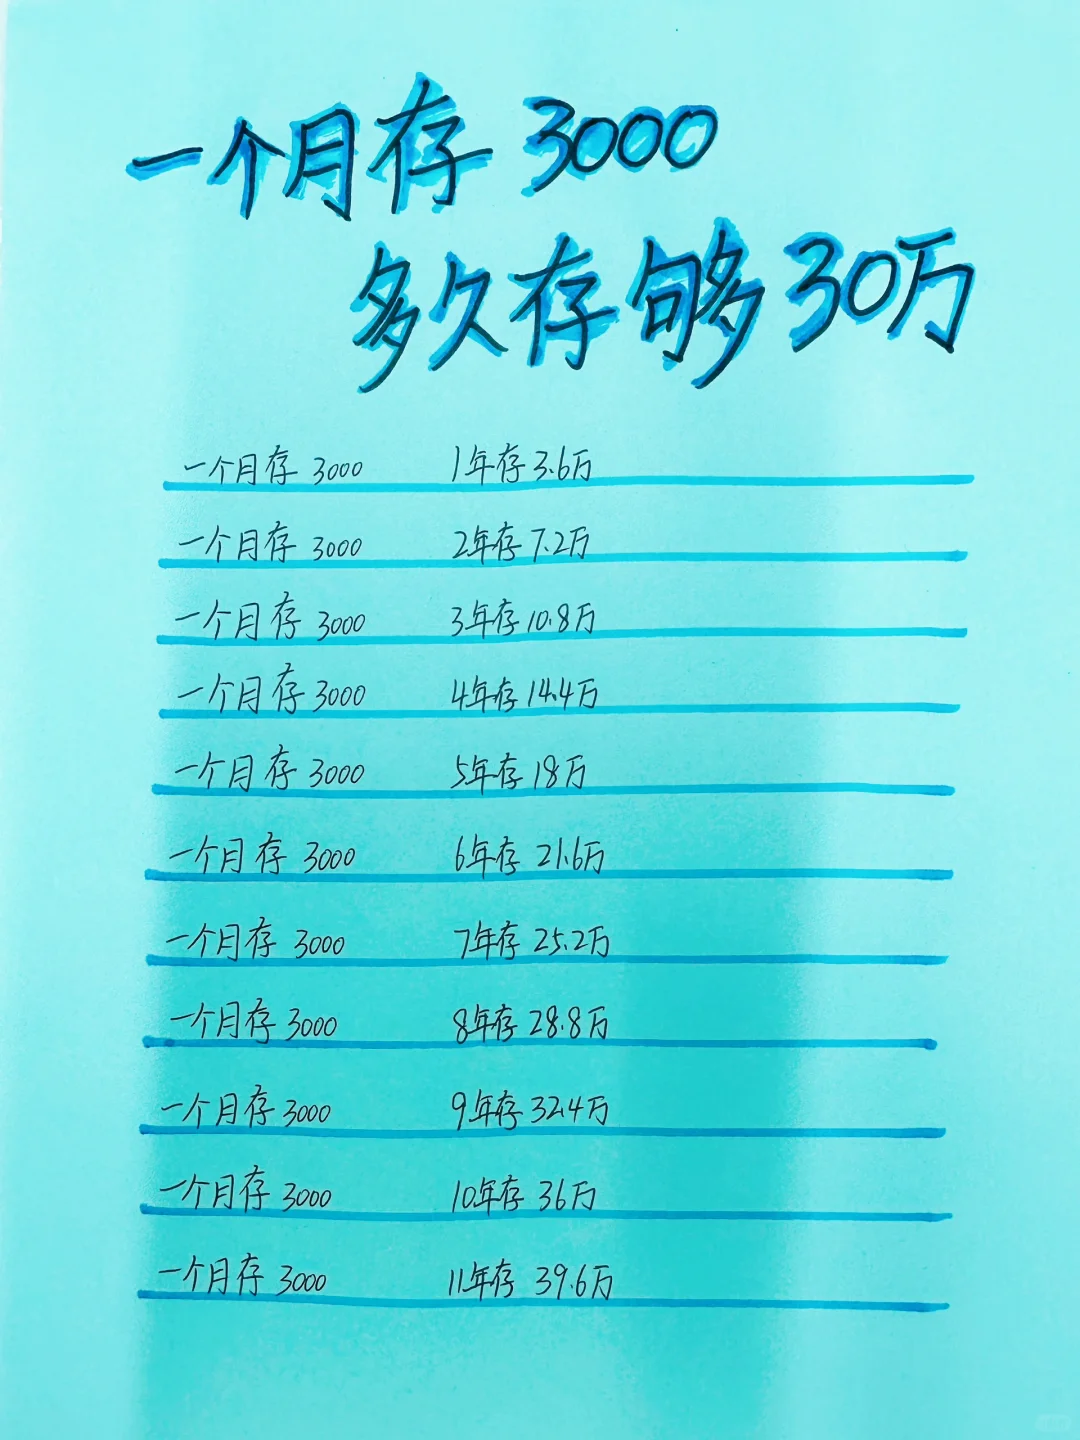 一个月存 3000
多久存够 30万
一个月存 3000 1年存 3.6万
一个月存 3000 2年存 7.2万
一个月存 3000 3年存 10.8万
一个月存 3000 4年存 14.4万
一个月存 3000 5年存 18万
一个月存 3000 6年存 21.6万
一个月存 3000 7年存 25.2万
一个月存 3000 8年存 28.8万
一个月存 3000 9年存 32.4万
一个月存 3000 10年存 36万
一个月存 3000 11年存 39.6万